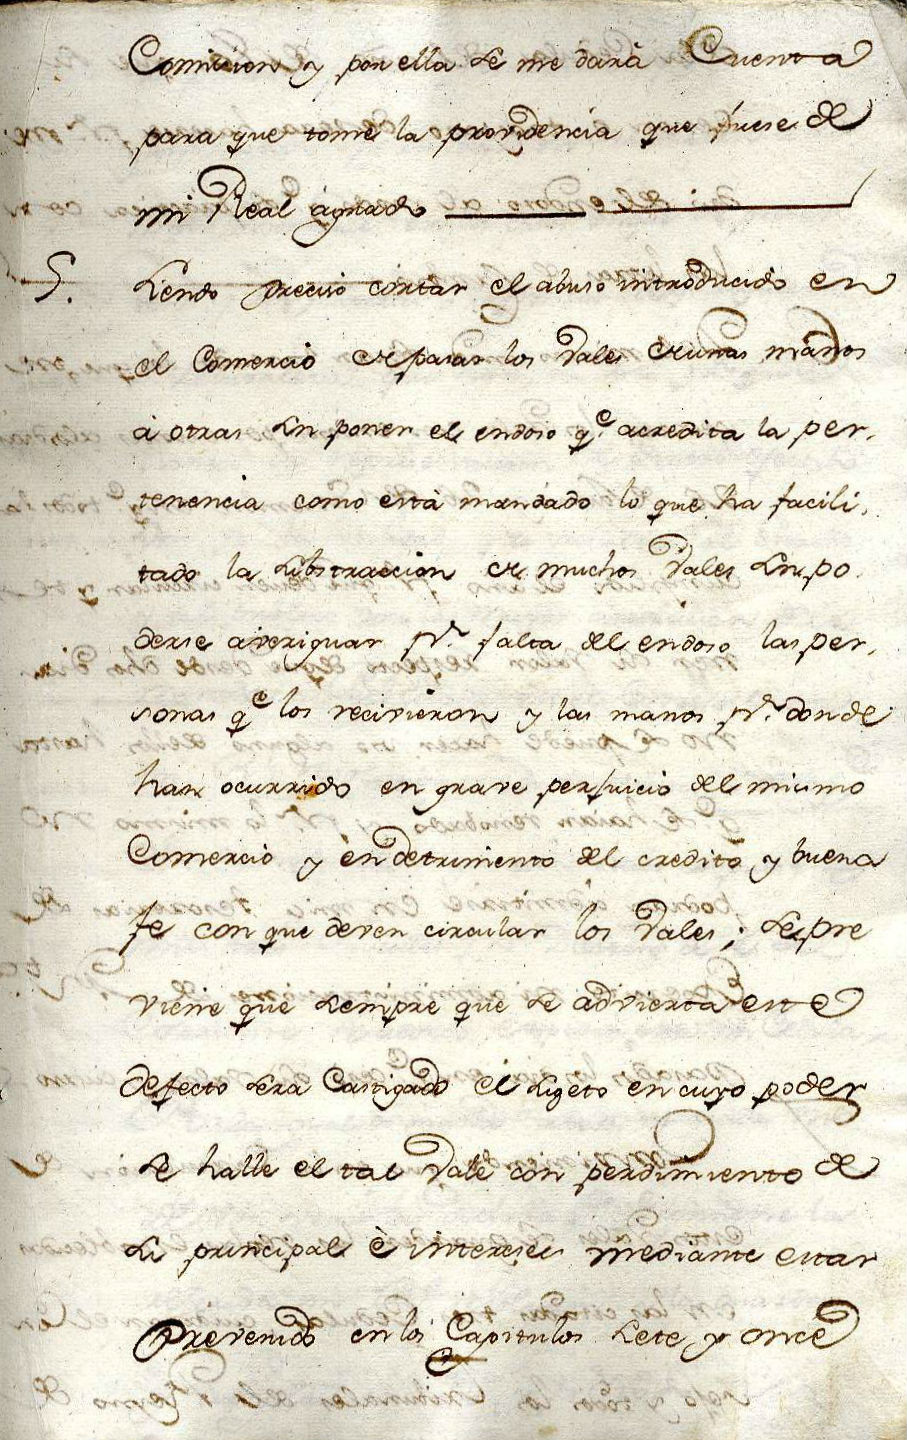 Comision y por ella se me dará Cuenta
para que tome la providencia que fuese de
mi Real agrado
5. Siendo preciso cortar el abuso introducido en
el Comercio de pasar los Vales de unas manos
á otras sin poner el endoso qe. acredita la per,
tenencia como está mandado lo que ha facili,
tado la substraccion de muchos Vales sin po
derse averiguar pr. falta del endoso las per,
sonas qe. los recivieron y las manos pr. donde
han ocurrido en grave perjuicio del mismo
Comercio y en detrimento del credito y buena
fe con que deven circular los Vales; se pre
viene que siempre que se advierta este
defecto sera Castigado el sugeto en cuyo poder
se halle el tal Vale con perdimiento de
su principal è intereses mediante estar
Prevenido en los Capitulos siete y once